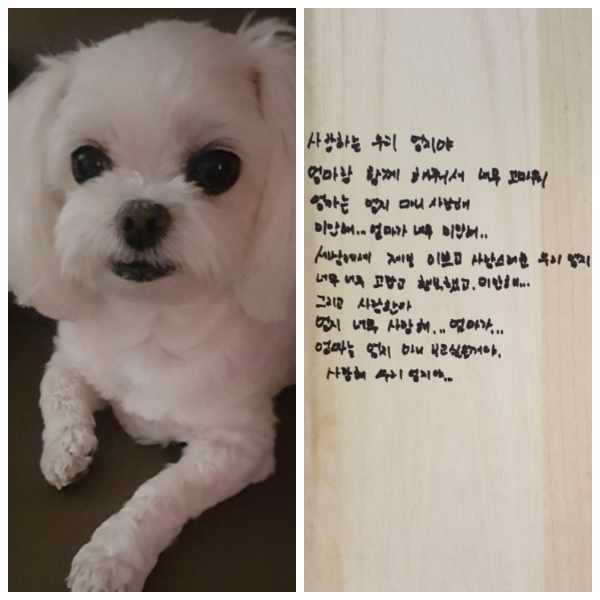 사랑하는 우리 엄지야
엄마랑 함께 해줘서 너무 고마워
엄마는 엄지 마니 사랑해
미안해.. 엄마가 너무 미안해..
세상에서 제일 이쁘고 사랑스러운 우리 엄지
너무 너무 고맙고 행복했고. 미안해...
그리고 사랑한다
엄지 너무 사랑해... 엄마가...
엄마는 엄지 마니 보고싶을거야.
사랑해 우리 엄지야..